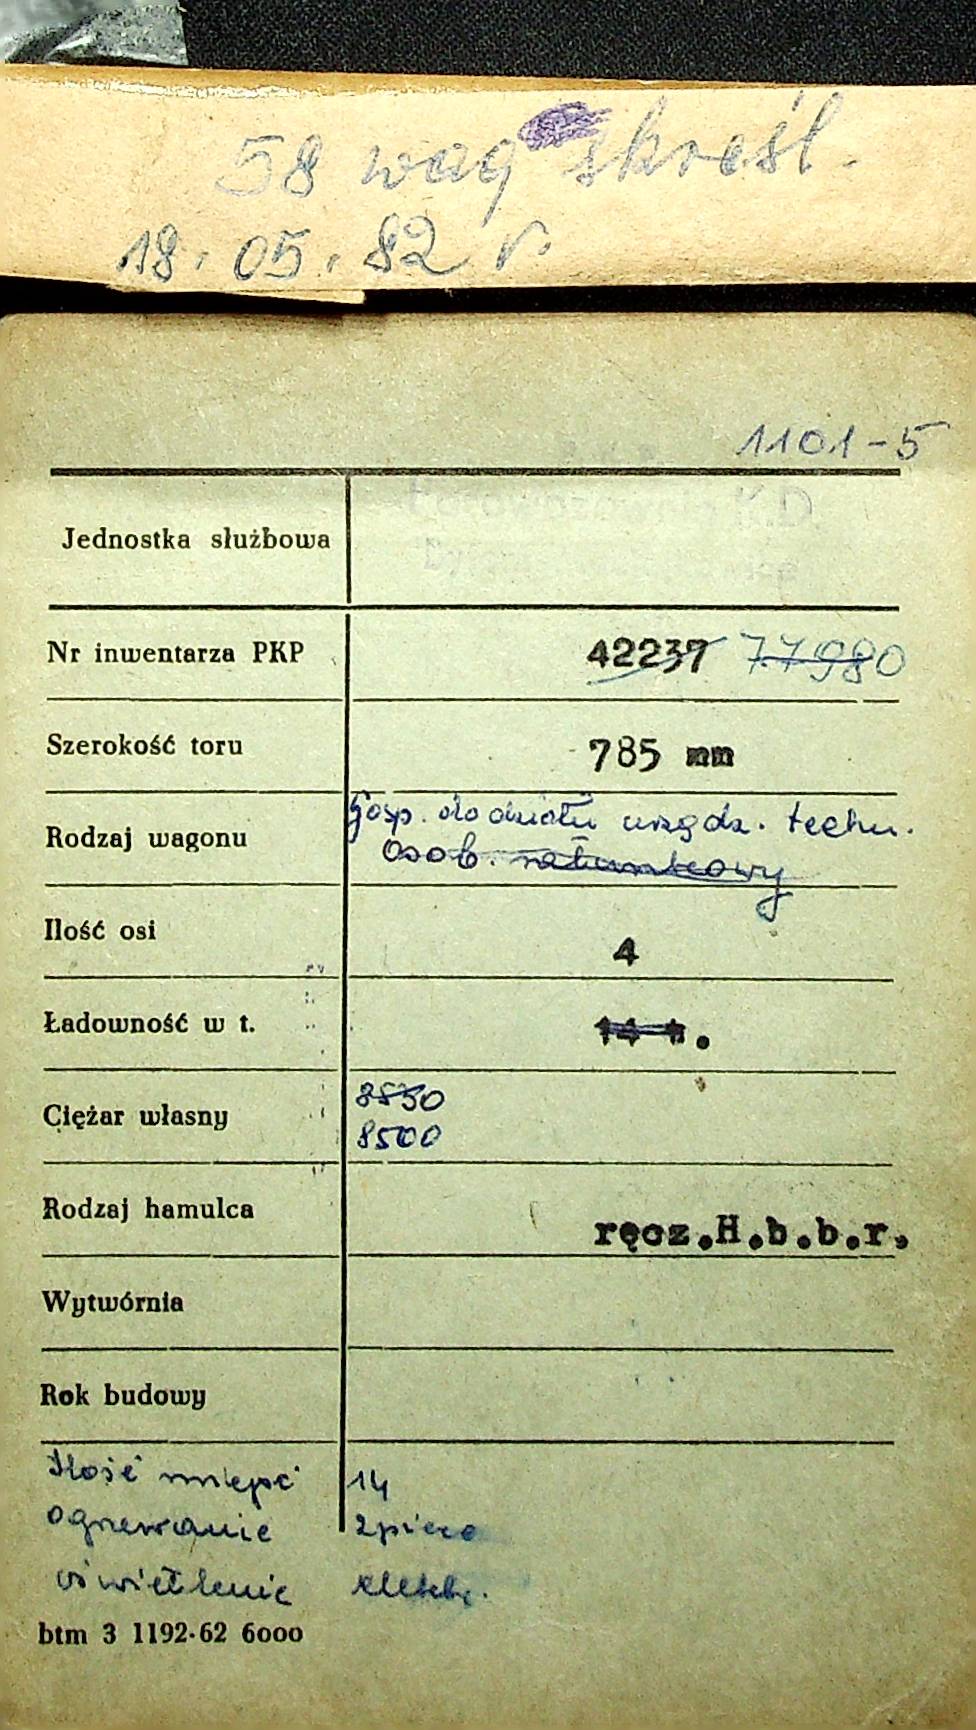 58 wag skreśl.
18.05.82 r.
1101-5
Parowozownia K.D.
Jednostka służbowa
Nr inwentarza PKP 42237 77980
Szerokość toru 785 mm
Gosp. do działu urządz. techn.
Rodzaj wagonu
Osob. ratunkowy
Ilość osi 4
Ładowność w t. 14 t.
8850
Ciężar własny
8500
Rodzaj hamulca ręcz.H.b.b.r.
Wytwórnia
Rok budowy
Ilość miejsc 14
ogrzewanie 2 piece
oświetlenie elektr.
btm 3 1192-62 6000